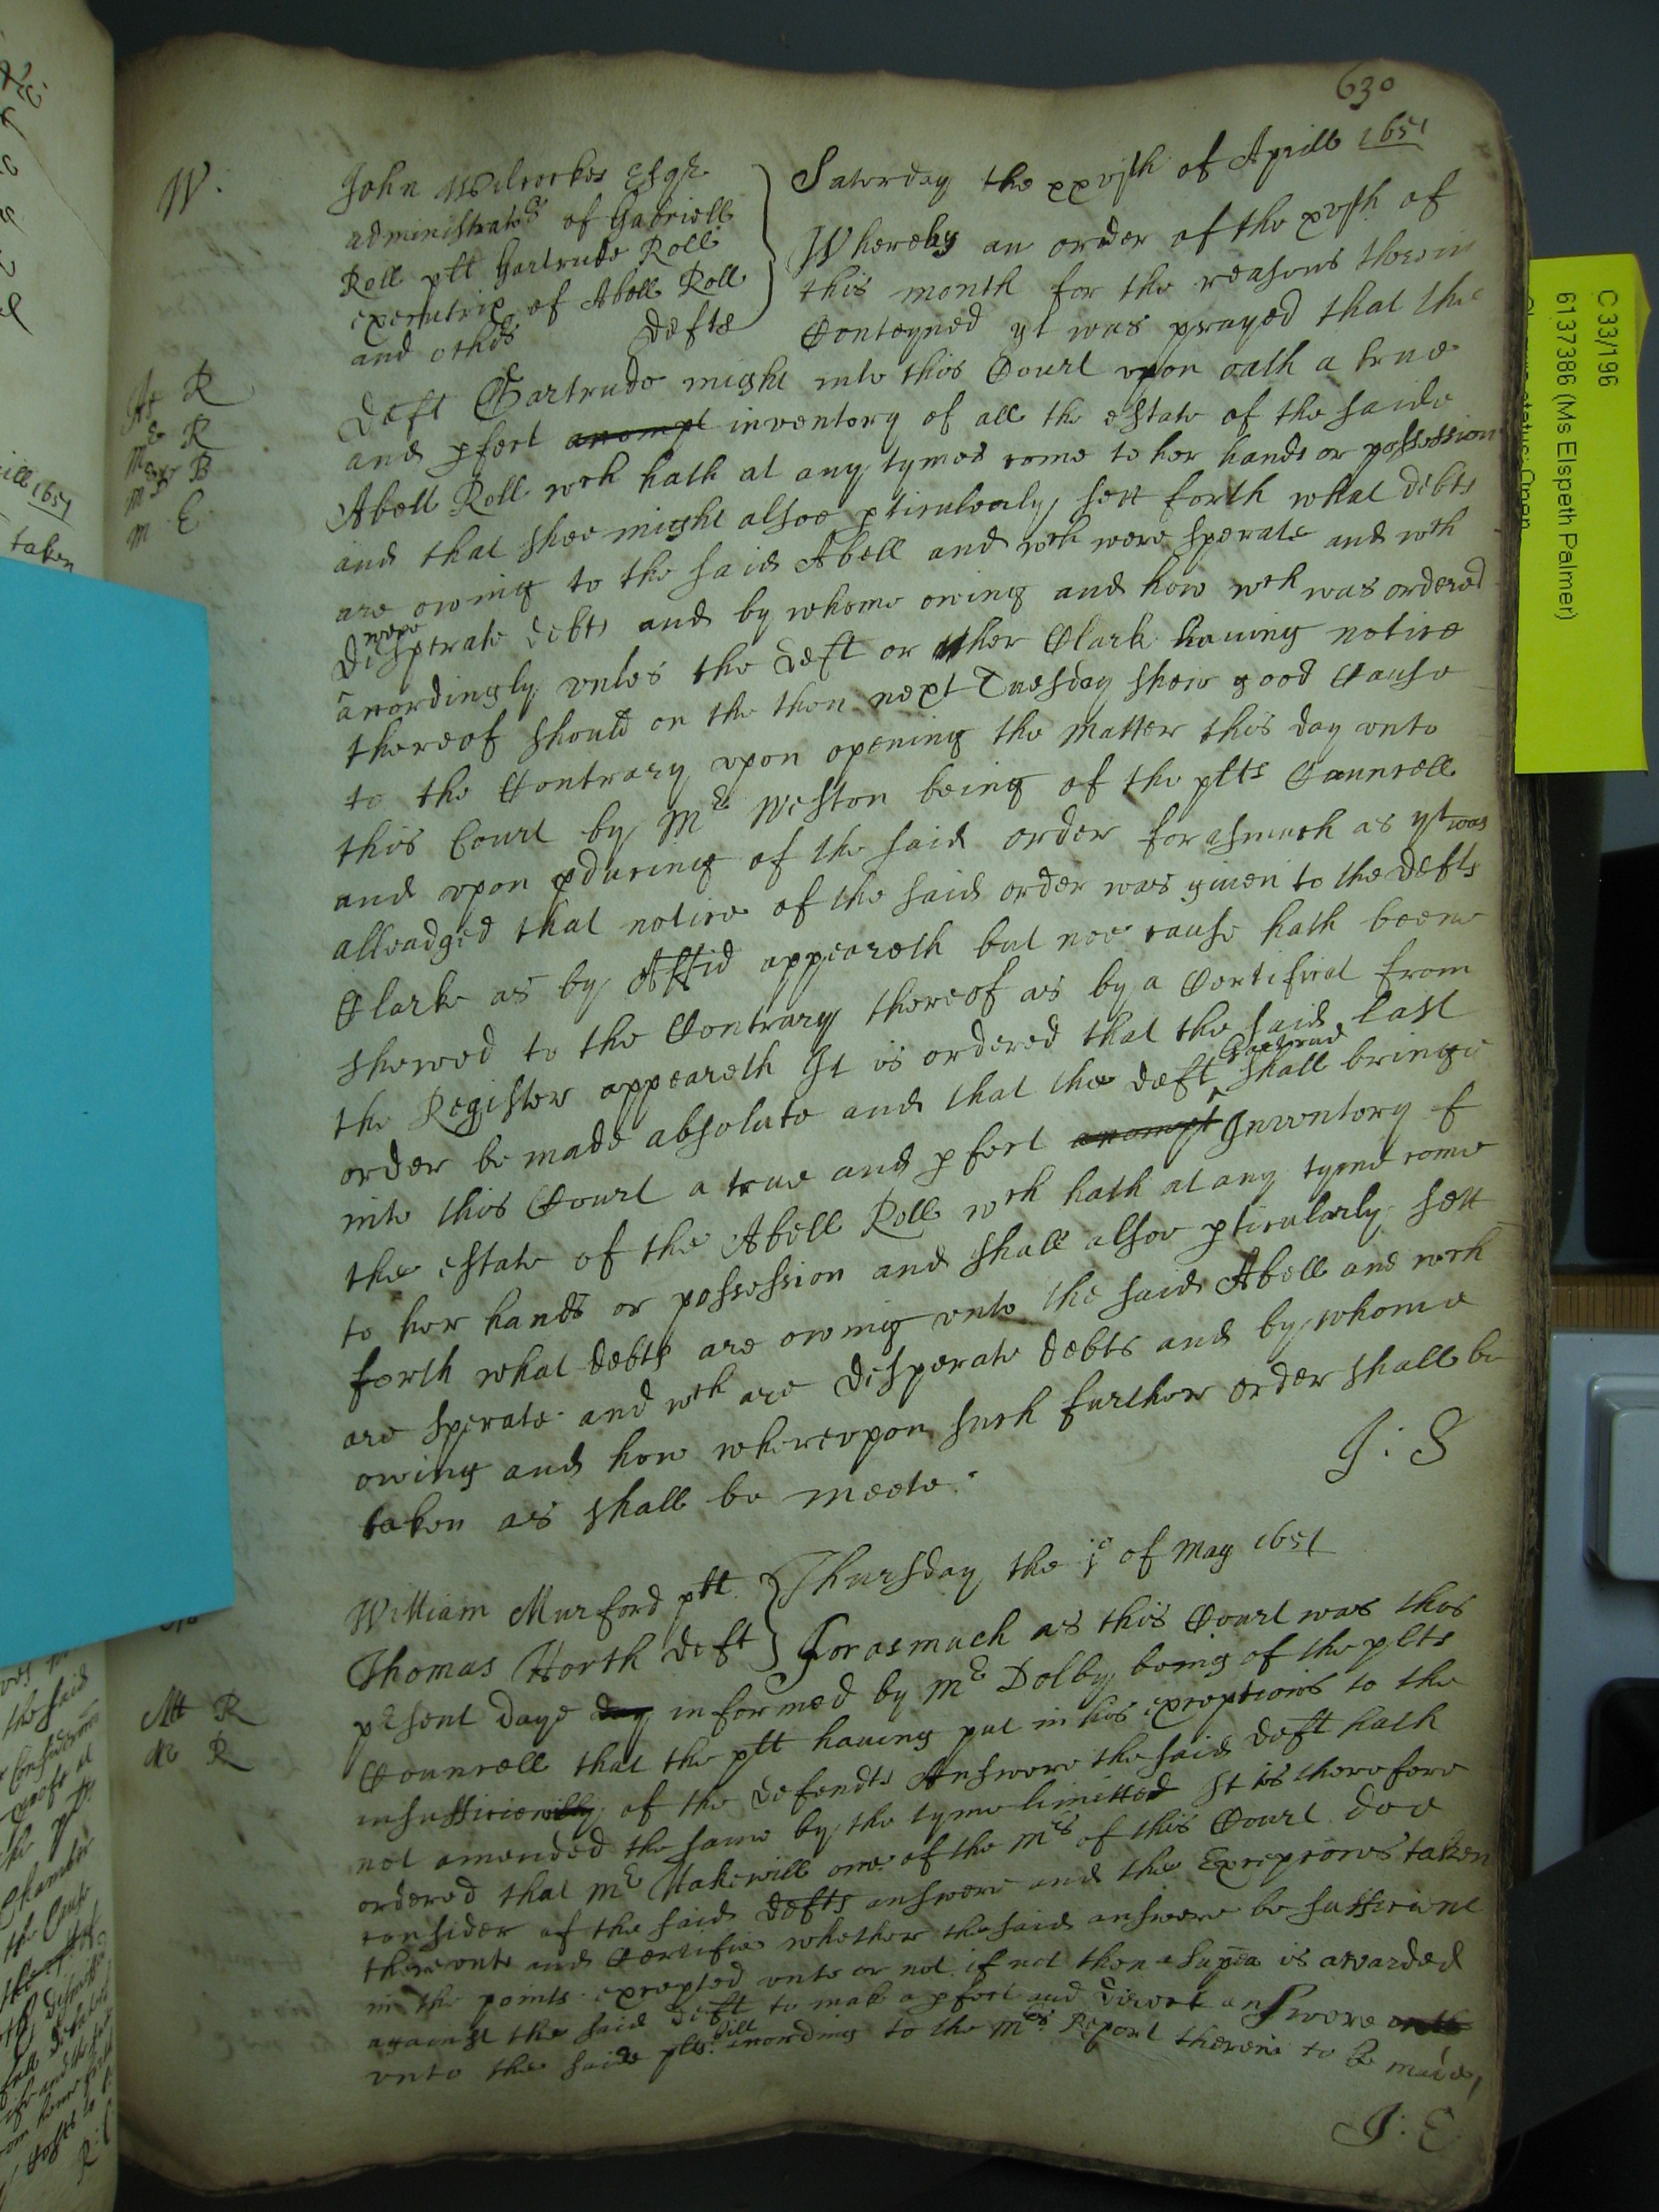 630
W.
John Wilcockes Esqr
administrator of Gabriell
Roll plt Gartrude Roll
executrix of Abell Roll
and others Defts
Saterday the xxvjth of Aprill 1651
Whereby an order of the xvjth of
this month for the reasons therein
Conteyned yt was prayed that the
Deft Gartrude might into this Court vpon oath a true
and pfect accompt inventory of all the estate of the saide
Abell Roll wch hath at any tymes come to her hands or possession
and that shee might alsoe pticulerly sett forth what debts
are owing to the said Abell and wch were sperate and wch
were
Desperate debts and by whome owing and how wch was ordered
accordingly vnles the Deft or ther Clark hauing notice
thereof should on the then next Tuesday shew good Cause
to the Contrary vpon opening the Matter this day vnto
this Court by Mr Weston being of the plts Councell
and vpon pducing of the said order forasmuch as yt was
alleadged that notice of the said order was giuen to the Defts
Clarke as by Affid appeareth but noe cause hath beene
shewed to the Contrary thereof as by a Certificat from
the Register appeareth It is ordered that the said last
order be made absolute and that the deft Gartrud shall bringe
into this Court a true and pfect accompt Inventory of
the estate of the Abell Roll wch hath at any tyme come
to her hands or possession and shall alsoe pticularly sett
forth what debts are owing vnto the said Abell and wch
are sperate and wch are desperate debts and by whome
owing and how wherevpon such further order shall be
taken as shall be meete
J: S
R
Mr R
B
M E
William Murford plt
Thomas North deft
Thursday the jo of May 1651
Forasmuch as this Court was this
pesent daye day informed by Mr Dolby being of the plts
Councell that the plt hauing put in his exceptions to the
of the Defendts Answere the said deft hath
not amended the same by the tyme limitted It is therefore
ordered that Mr Hakewill one of the Mrs of this Court doe
consider of the said Defts answere and the Excepcions taken
therevnto and Certifie whether the said answere be sufficient
in the points excepted vnto or not if not then a Supena is awarded
against the said Deft to make a pfect and direct answere vnto
vnto the saide plts bill according to the Mrs Report therein to be made
J: E
R
R
C 33/196
6137386 (Ms Elspeth Palmer)
ill 1651
taken
the said
Chamber
the Cause